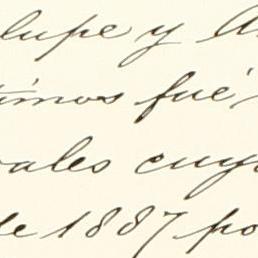 lupe y A
timos fué
ales cuy
de 1887 po